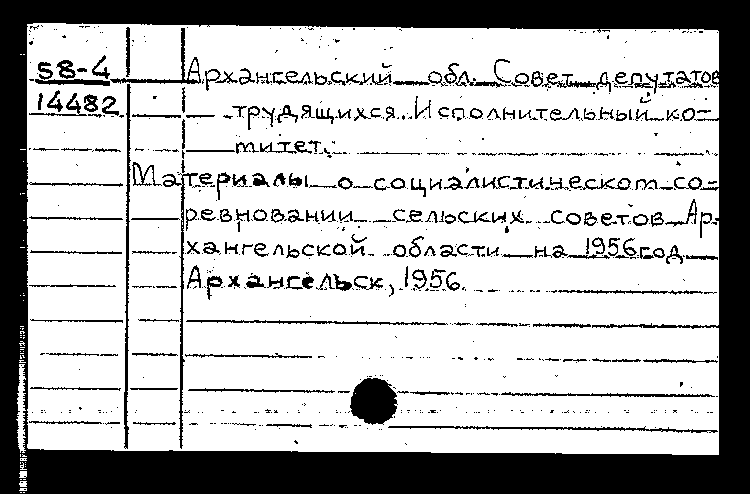 58-4
14482
Архангельский обл. Совет депутатов
трудящихся. Исполнительный ко-
митет.
Материалы о социалистическом со-
ревновании сельских советов Ар-
хангельской области на 1956 год
Архангельск, 1956.